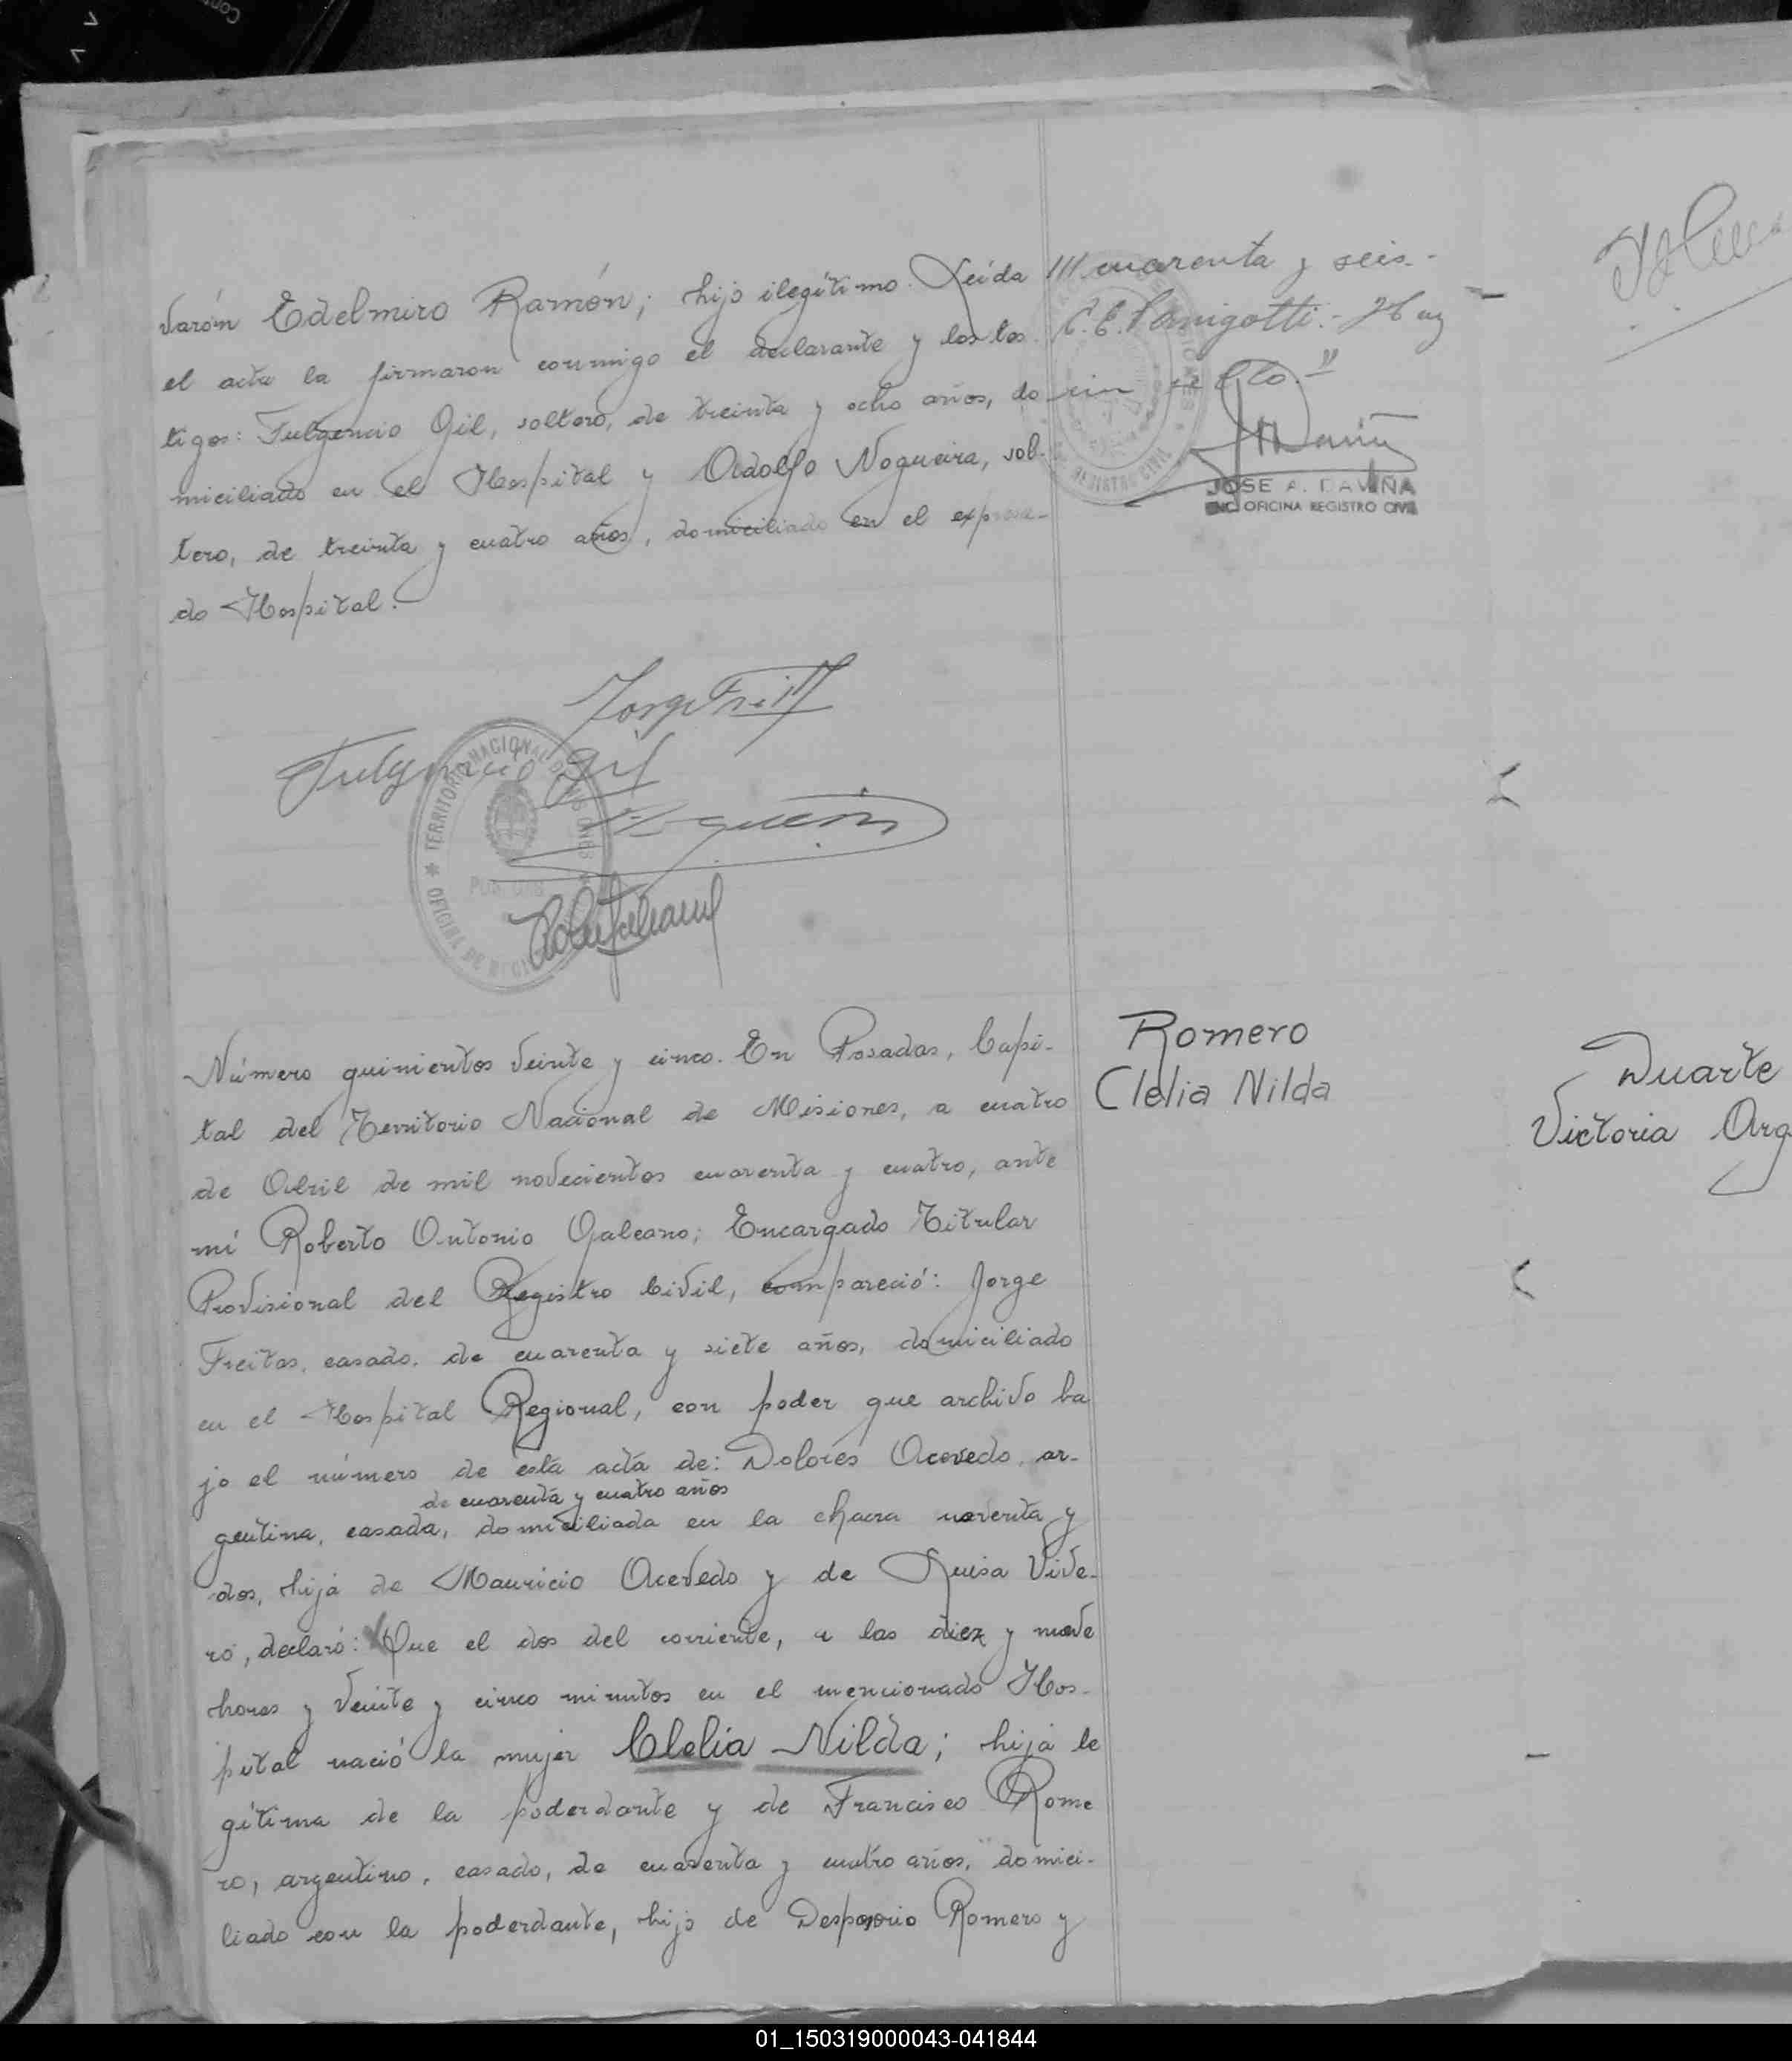 Varón Edelmiro Ramón; hijo ilegítimo. Leída
el acta la firmaron conmigo el declarante y los tes
tigos: Fulgencio Gil, soltero, de treinta y ocho años, do
miciliado en el Hospital y Adolfo Nogueira, sol-
tero, de treinta y cuatro años, domiciliado en el expresa-
do Hospital.
cuarenta y seis.-
JOSE A. DAVIÑA
ENC. OFICINA REGISTRO CIVIL
Jorge Freitas
Fulgencio Gil
TERRITORIO NACIONAL DE MISIONES
POSADAS
OFICINA DE REGISTRO CIVIL
Número quinientos veinte y cinco. En Posadas, Capi-
tal del Territorio Nacional de Misiones, a cuatro
de Abril de mil novecientos cuarenta y cuatro, ante
mi Roberto Antonio Galeano; Encargado Titular
Provisional del Registro Civil, compareció: Jorge
Freitas, casado, de cuarenta y siete años, domiciliado
en el Hospital Regional, con poder que archivo ba
jo el número de esta acta de: Dolores Acevedo, ar-
de cuarenta y cuatro años
gentina, casada, domiciliada en la chacra noventa y
dos, hija de Mauricio Acevedo y de Luisa Vive-
ro, declaró: Que el dos del corriente, a las diez y nueve
horas y veinte y cinco minutos en el mencionado Hos-
pital nació la mujer Clelia Nilda; hija le
gítima de la poderdante y de Francisco Rome
ro, argentino, casado, de cuarenta y cuatro años, domici-
liado con la poderdante, hijo de Desposorio Romero y
Romero
Clelia Nilda
Duarte
Victoria Arg
01_150319000043-041844